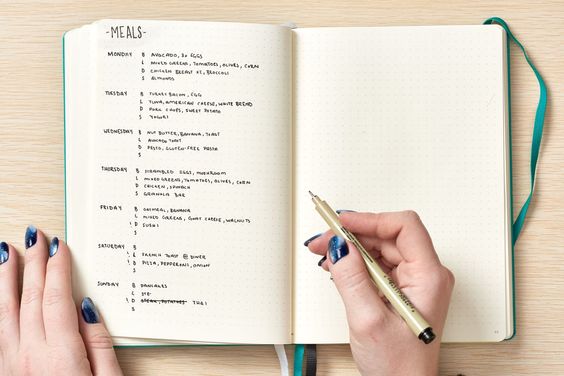 -MEALS-
MONDAY B AVOCADO, 2x EGGS
L MIXED GREENS, TOMATOES, OLIVES, CORN
D CHICKEN BREAST, BROCCOLI
S ALMONDS
TUESDAY B TURKEY BACON, EGG
L TUNA, AMERICAN CHEESE, WHITE BREAD
D PORK CHOPS, SWEET POTATO
S YOGURT
WEDNESDAY B NUT BUTTER, BANANA, TOAST
L AVOCADO TOAST
D PESTO, GLUTEN-FREE PASTA
S
THURSDAY B SCRAMBLED EGGS, MUSHROOM
L MIXED GREENS, TOMATOES, OLIVES, CORN
D CHICKEN, SPINACH
S GRANOLA BAR
FRIDAY B OATMEAL, BANANA
L MIXED GREENS, GOAT CHEESE, WALNUTS
! D SUSHI
S
SATURDAY B
! L FRENCH TOAST @ DINER
! D PIZZA, PEPPERONI, ONION
S
SUNDAY B PANCAKES
L
! D STEAK, POTATOES THAI
S